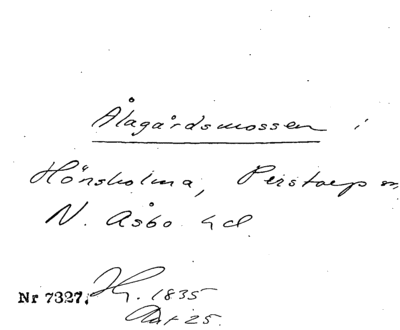 Ålagårdsmossen i
Hönsholma, Perstorp sn,
N. Åsbo hd
Nr 7327. 1835
25.